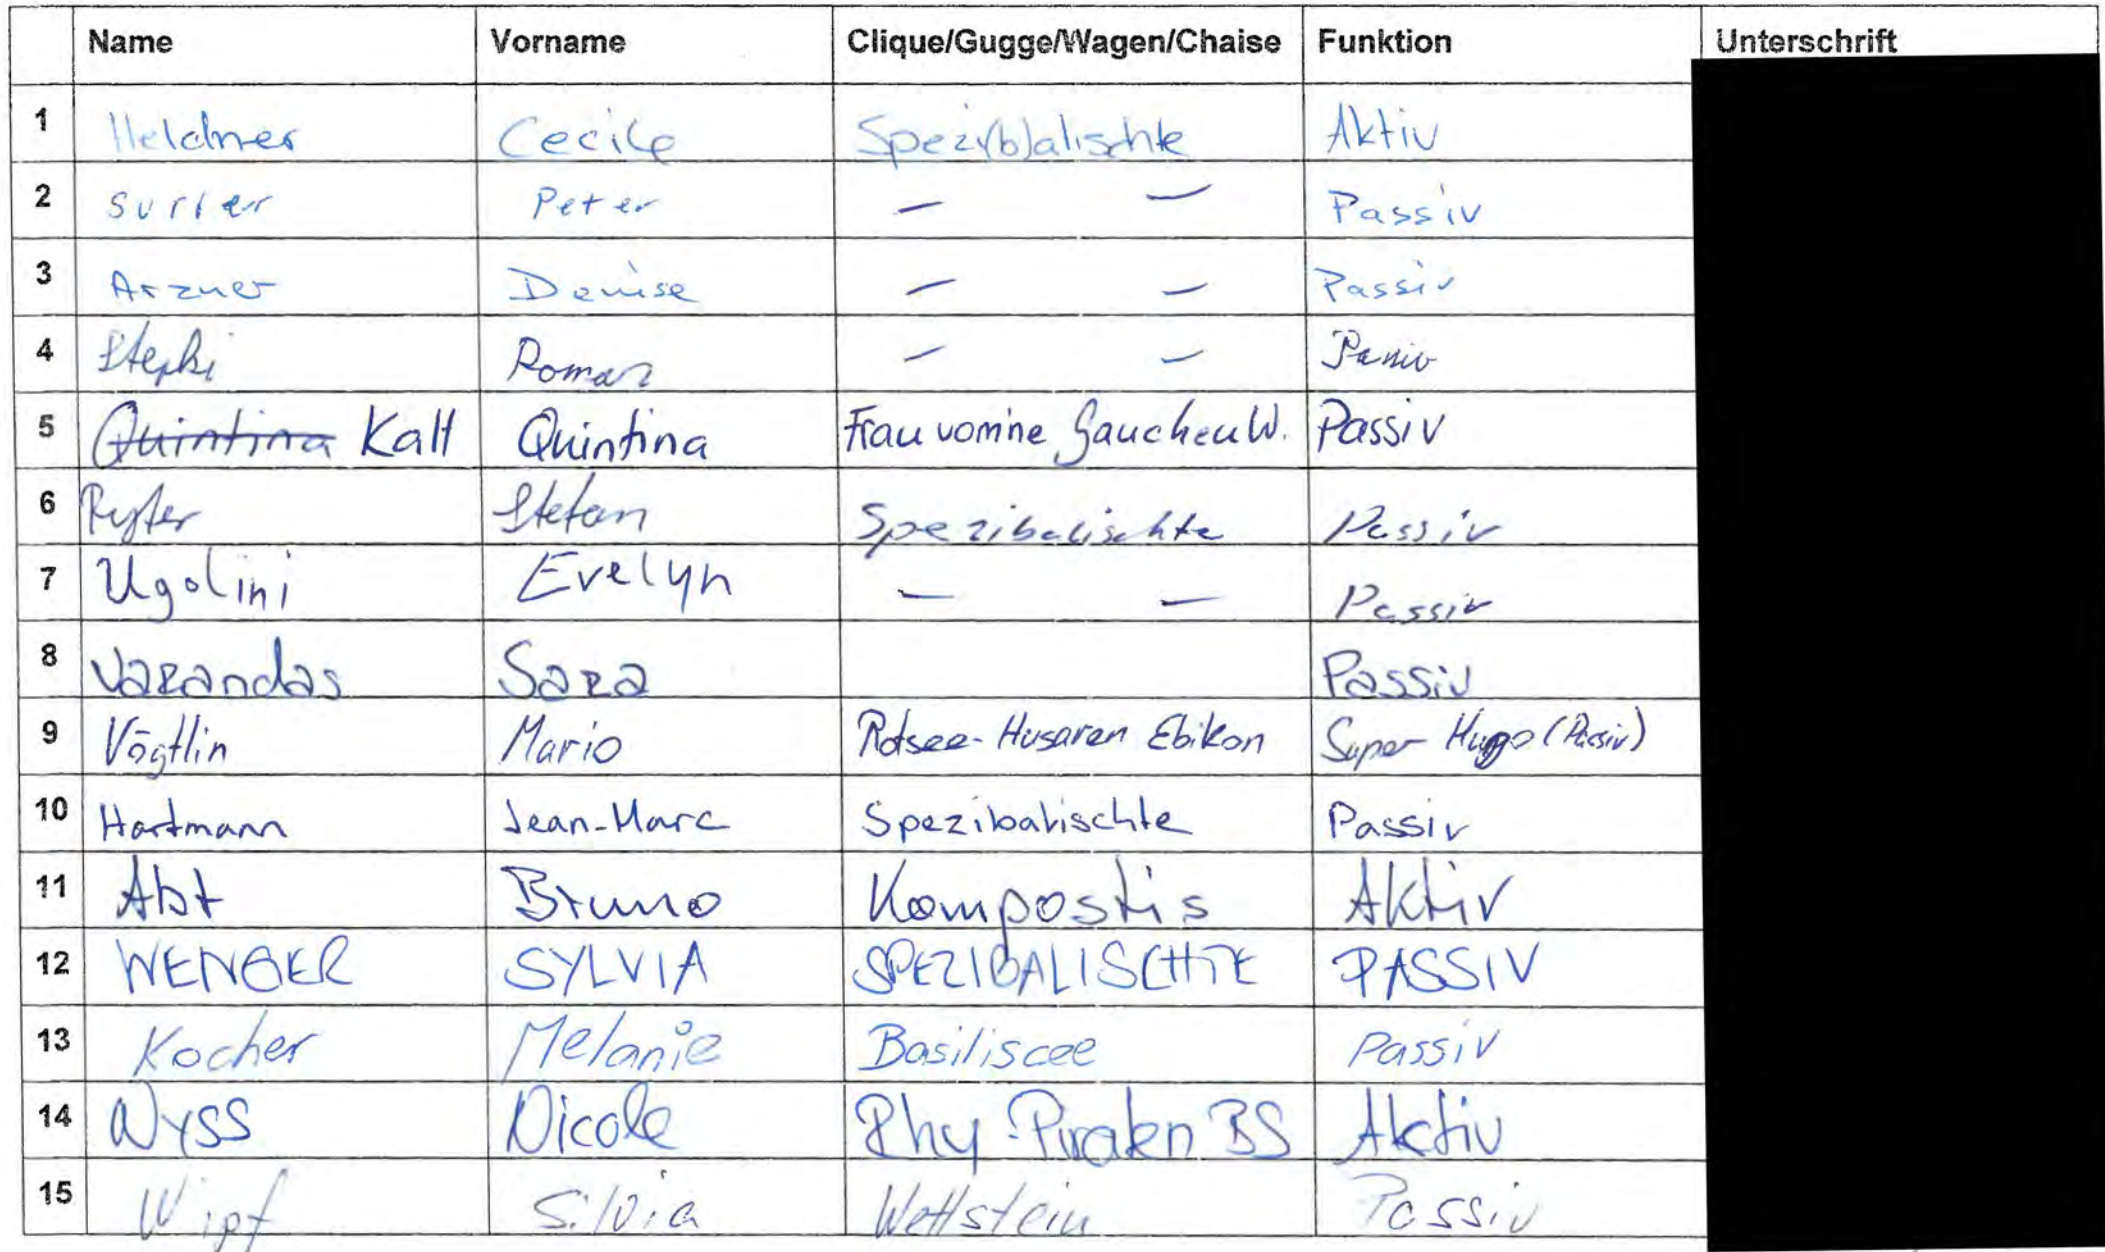 Name Vorname Clique/Gugge/Wagen/Chaise Funktion Unterschrift
1 Heldner Cecile Spezi(b)alischte Aktiv
2 Surer Peter — — Passiv
3 Arzner Denise — — Passiv
4 Roman — — Passiv
5 Quintina Kalt Quintina Frau vomne Gauchen W. Passiv
6 Ryter Stefan Spezibalischte Passiv
7 Ugolini Evelyn — — Passiv
8 Varandas Sara Passiv
9 Vögtlin Mario Rotsee-Husaren Ebikon Super Hugo (Passiv)
10 Hartmann Jean-Marc Spezibalischte Passiv
11 Abt Bruno Kompostis Aktiv
12 WENGER SYLVIA SPEZIBALISCHTE PASSIV
13 Kocher Melanie Basiliscee Passiv
14 Wyss Nicole Rhy-Piraten BS Aktiv
15 Wipf Silvia Wettstein Passiv